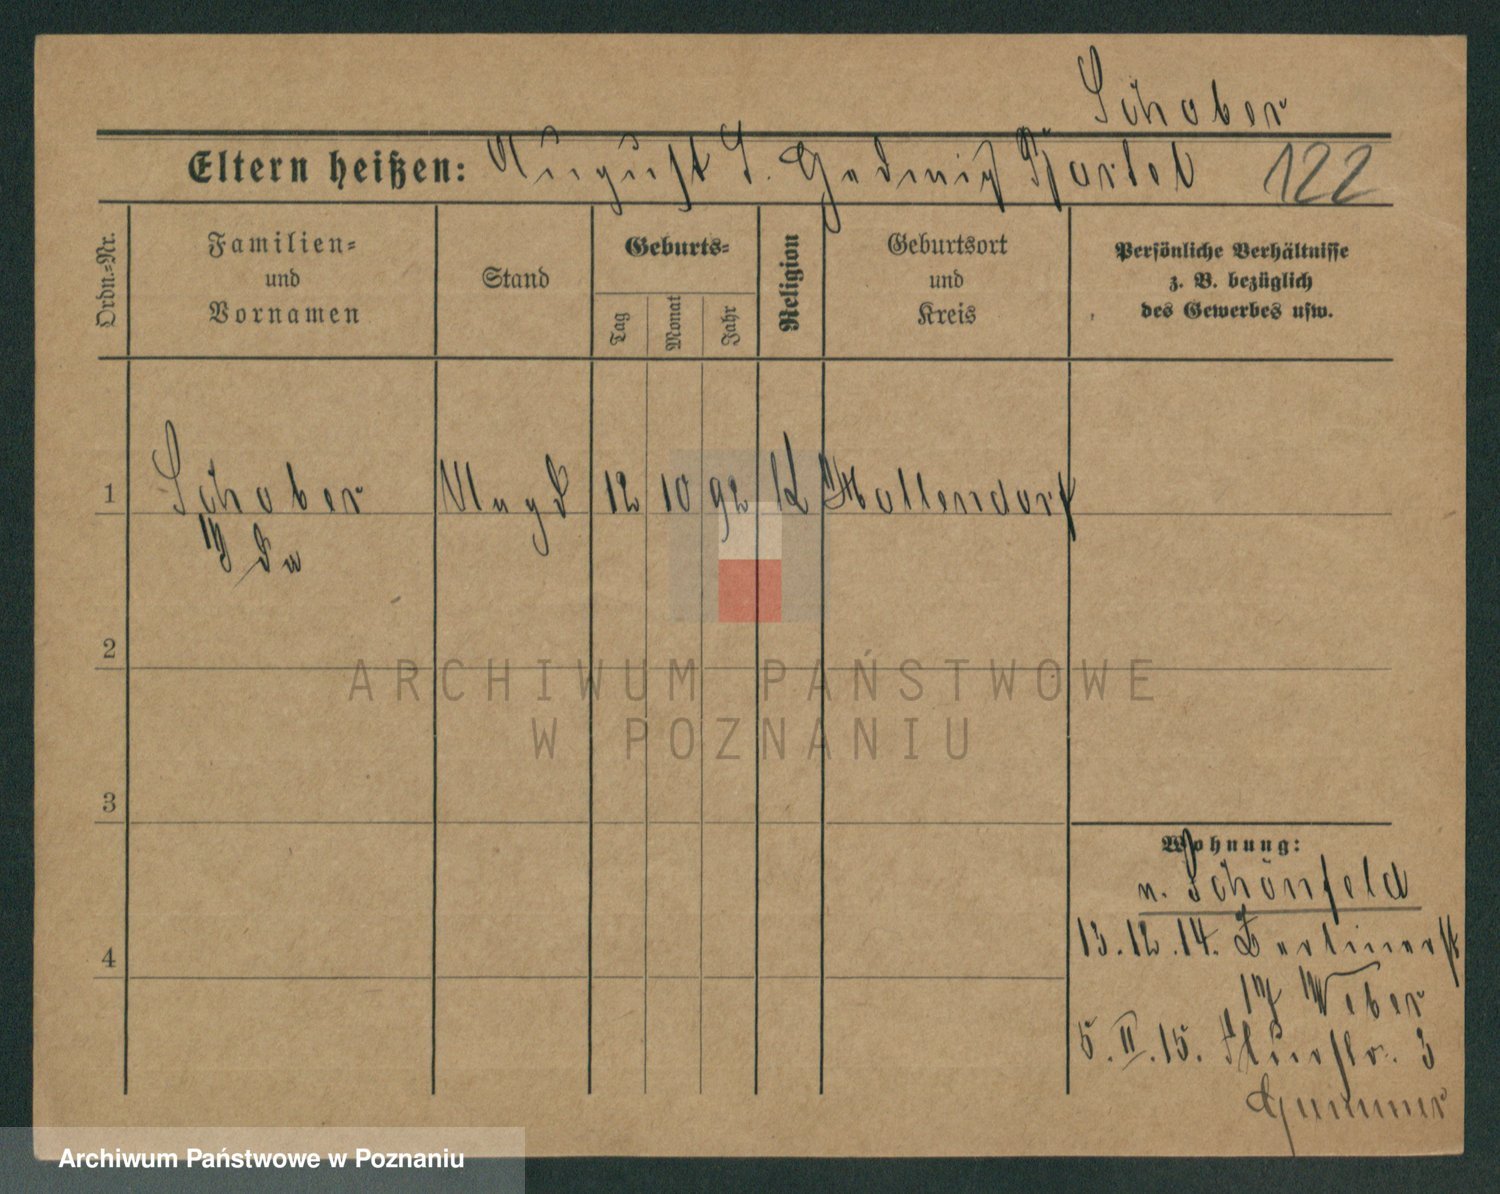 Schober
Eltern heißen: August S. Hedwig Bartel 122
Ordn.=Nr.
Familien=
und
Vornamen
Stand
Geburts=
Tag
Monat
Jahr
Religion
Geburtsort
und
Kreis
Persönliche Verhältnisse
z. B. bezüglich
des Gewerbes usw.
1 Schober Magd 12 10 92 K Mollendorf
Ida
2
3
4
Wohnung:
n. Schönfeld
13.12.14. Berlinerst
17 Weber
5.II.15. 3
ARCHIWUM PAŃSTWOWE
W POZNANIU
Archiwum Państwowe w Poznaniu